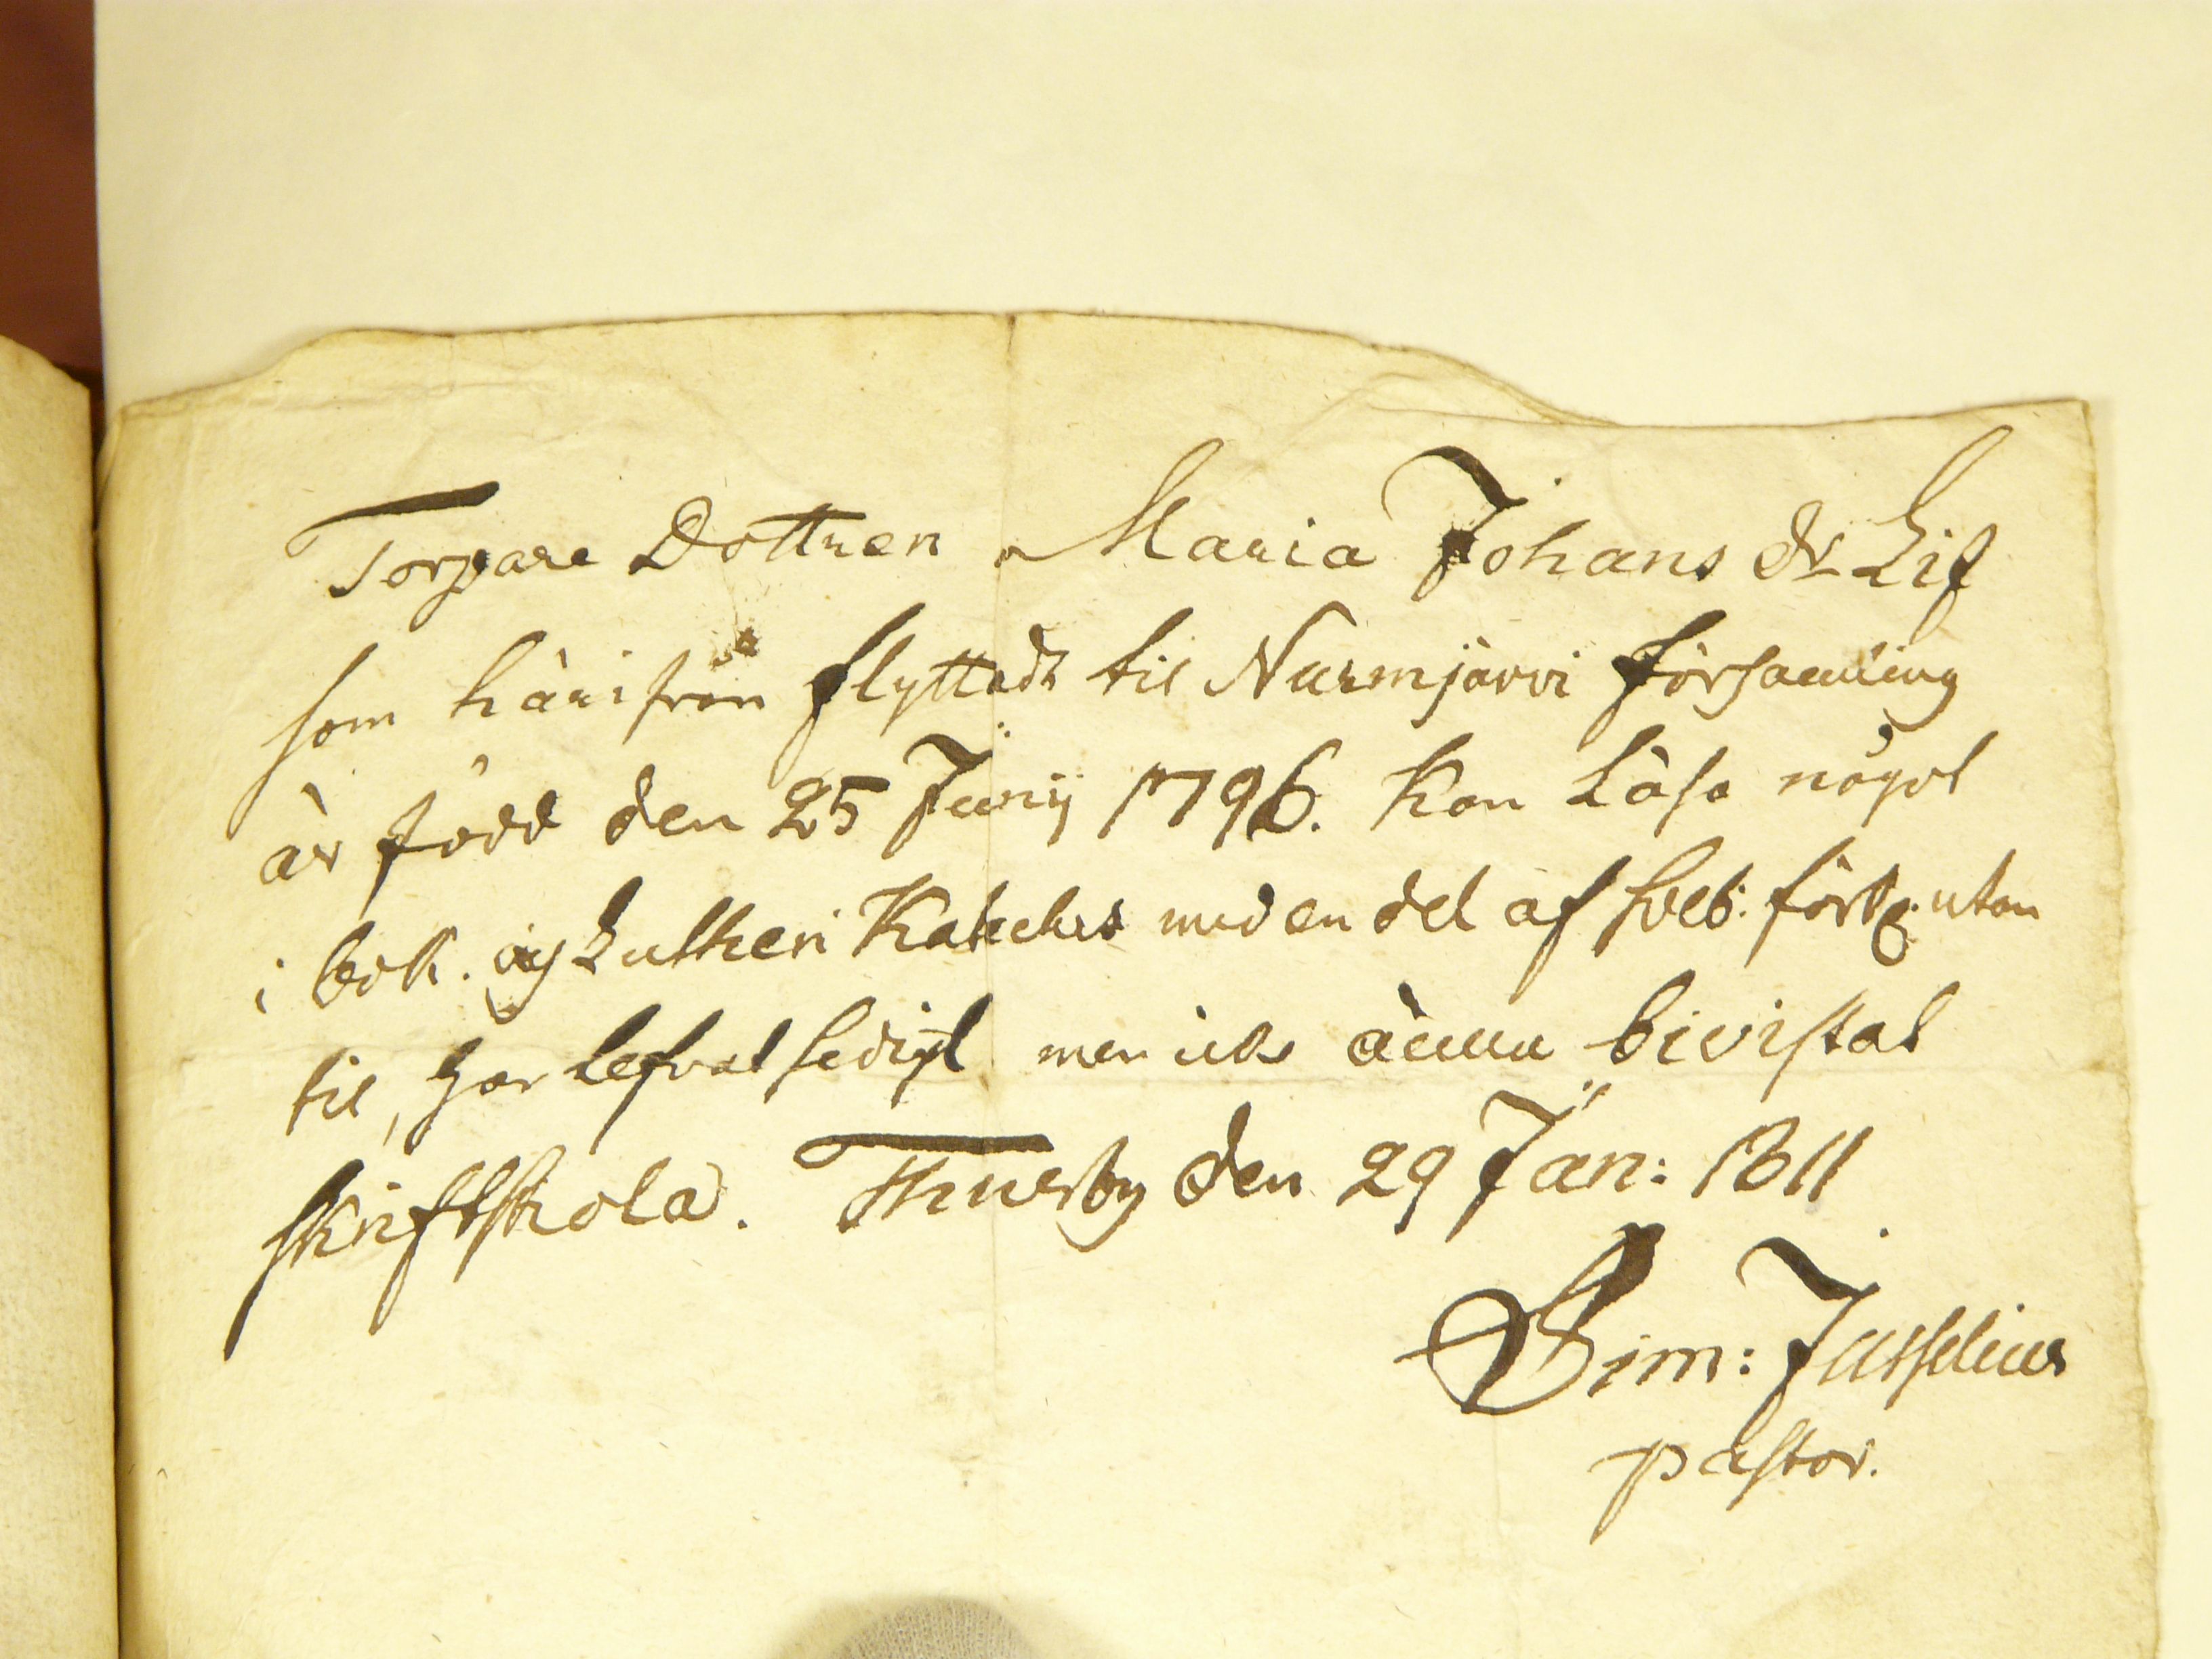 Torpare Dottren Maria Johans dr Lif
som härifrån flyttadt til Nurmjärvi församling
är född den 25 Junij 1796. Kan Läsa något
i bok. og Lutheri Kateches med en del af Sveb: förkl. utan
til, har lefvat sedigt men icke ännu bivistat
skriftskola. Thusby den 29 Jan: 1811
Sim: Jusselius
pastor.